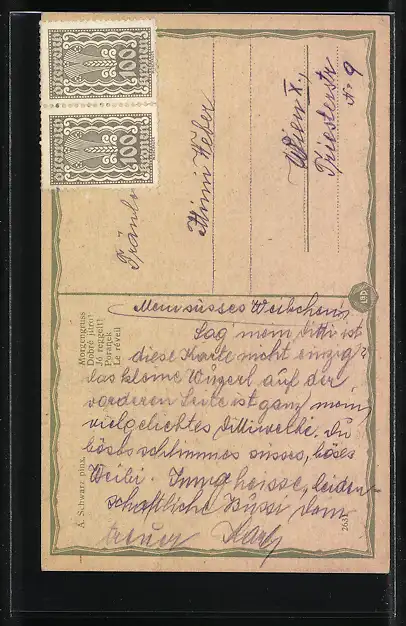 Österreich
100
Kronen
Österreich
100
Kronen
Fräulein
Minni Weber
Wien X.,
Triesterstr
No 9
Morgengruss
Dobré jitro!
Jó reggelt!
Poranek
Le réveil
A. Schwarz pinx.
2631
Mein süsses Weibchen
Sag' mein Ditti ist
diese Karte nicht einzig?
das kleine Wuzerl auf der
vorderen Seite ist ganz mein
vielgeliebtes Du
böses schlimmes süsses, böses
Weibi. Innig heisse, leiden-
schaftliche Bussi Dein
treuer Karl